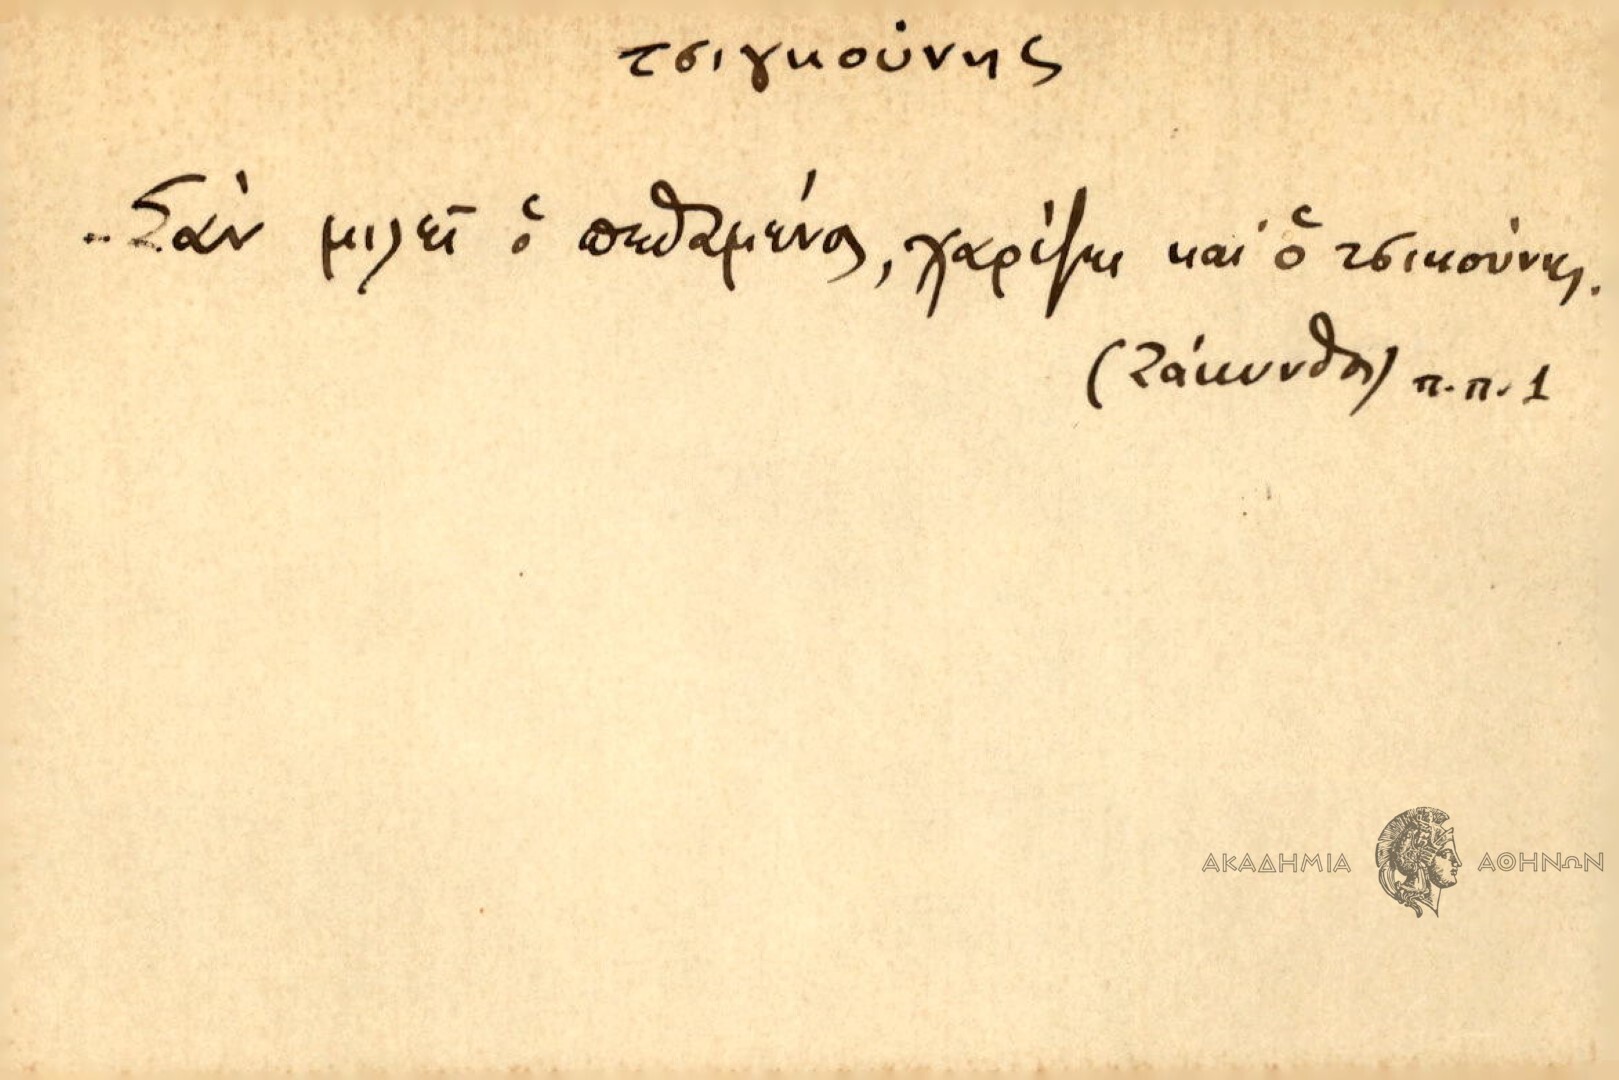 τσιγκούνης
..Σὰν μιλεῖ ὁ πεθαμένος, χαρίζει καὶ ὁ τσικούνης.
(Ζάκυνθος) π.π.1
ΑΚΑΔΗΜΙΑ ΑΘΗΝΩΝ